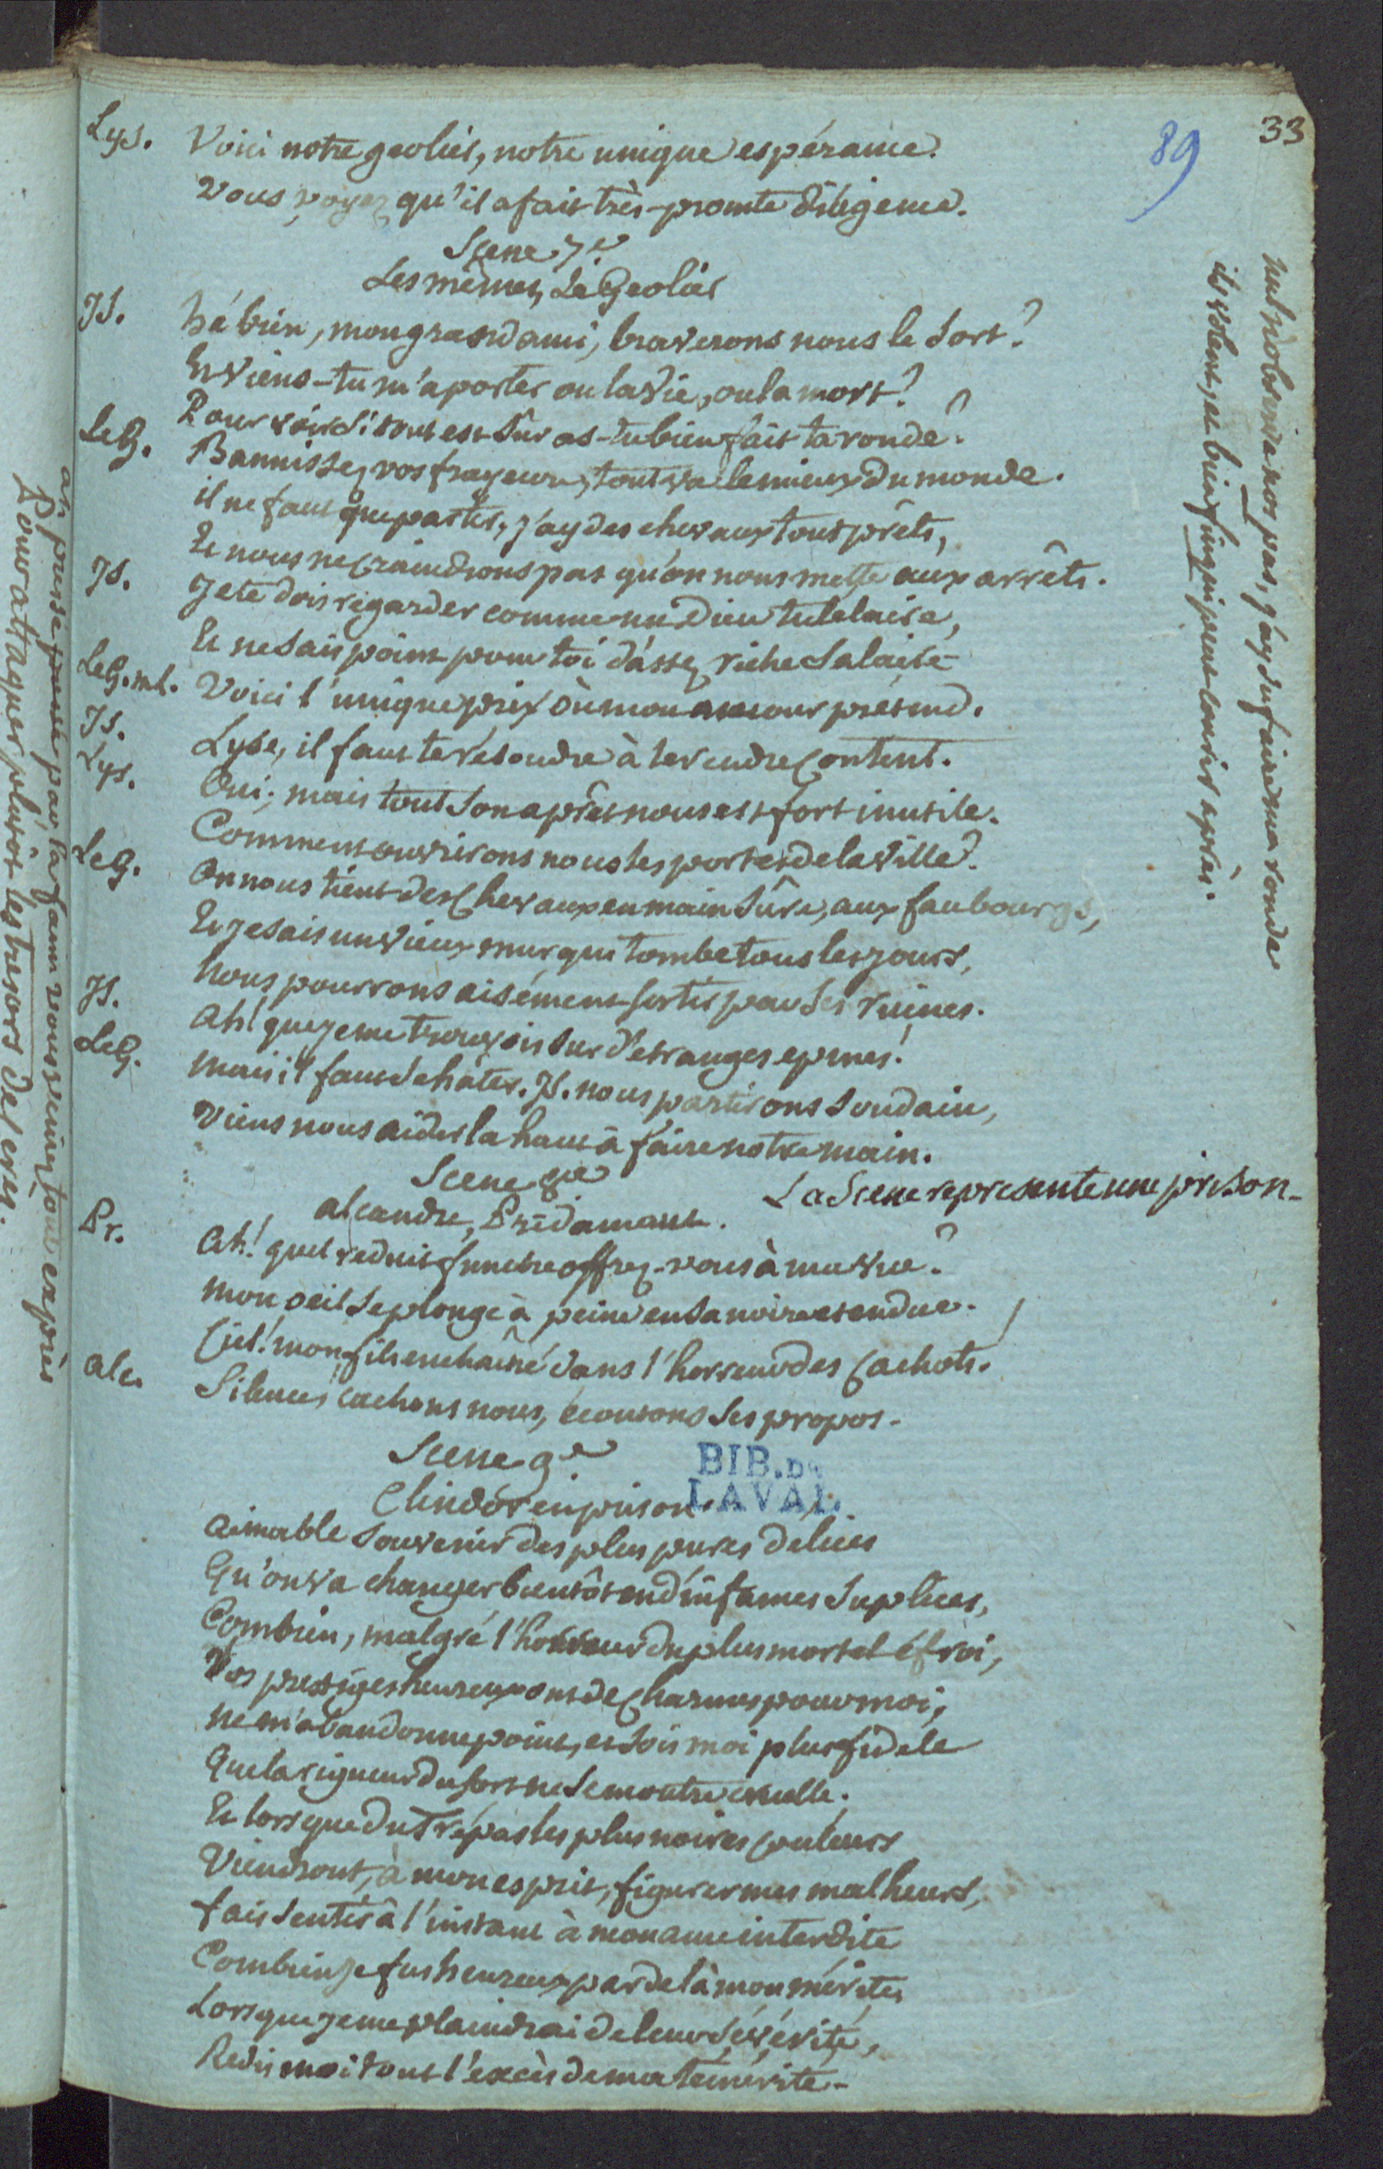 33
89
Lys. Voici notre geolier, notre unique espérance.
Vous voyez qu'il a fait très-promte diligence.
Scene 7e
Les mêmes, Le Geolier
Is. hé bien, mon grand ami, braverons nous le sort?
En viens-tu m'aporter ou la vie, ou la mort?
Pour voir si tout est sûr as-tu bien fait ta ronde?
Le G. Bannissez vos frayeurs, tout va le mieux du monde.
il ne faut que partir, j'ay des chevaux tout prêts,
Et nous ne craindrons pas qu'on nous mette aux arrêts.
Is. Je te dois regarder comme un Dieu tutelaire,
Et ne sais point pour toi d'assez riche salaire
Le G. mt. Voici l'unique prix où mon amour prétend.
Is. Lyse, il faut te résoudre à le rendre content.
Lys. Oui; mais tout son aprêt nous est fort inutile.
Comment ouvrirons nous les portes de la ville?
Le G. On nous tient des chevaux en main sûre, aux faubourgs,
Et je sais un vieux mur qui tombe tous les jours,
Nous pourrons aisément sortir par ses ruines.
Is. Ah! que je me trouvois sur d'etranges epines!
Le G. Mais il faut se hâter. Is. nous partirons soudain,
Viens nous aider la haut à faire notre main.
Scene 8e
La Scene represente une prison
alcandre, Pridamant.
Pr. Ah! quel reduit funebre offrez-vous à ma vue?
Mon oeil se plonge à peine en sa noire etendue.
Ciel! mon fils enchaîné dans l'horreur des cachots.
Alc. Silence, cachons nous, écoutons ses propos.
Scene 9e
BIB. DE
LAVAL
Clindor en prison
Aimable souvenir des plus pures delices
Qu'on va changer bientôt en d'infames suplices,
Combien, malgré l'horreur du plus mortel éfroi,
Vos prestiges heureux ont de charmes pour moi,
Ne m'abandonne point, et sois moi plus fidele
Que la rigueur du sort ne se montre cruelle.
Et lorsque du Trépas les plus noires couleurs
Viendront, à mon esprit, figurer mes malheurs,
fais sentir à l'instant à mon ame interdite
Combien je fus heureux par delà mon mérite,
Lorsque je me plaindrai de leur sévérité,
Redis moi tout l'excès de ma témérité.
nos pas, j'ay su faire ma ronde
ils volent, et bien fin qui peut courir après.
par la faim vous venez tout exprès
Pour attaquer plutôt les tresors de Ceres.